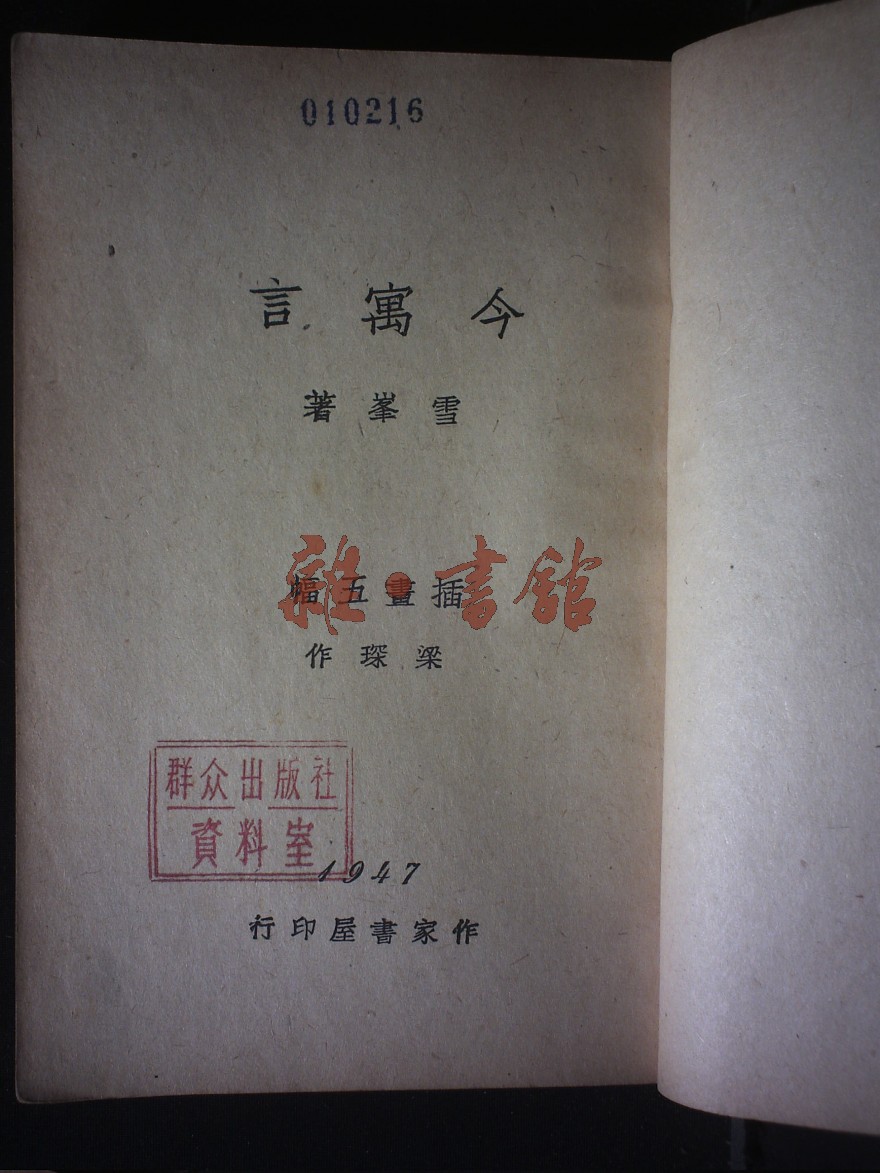 010216
今寓言
雪峯著
雜·書館
插畫五幅
梁琛作
群众出版社
資料室
1947
作家書屋印行